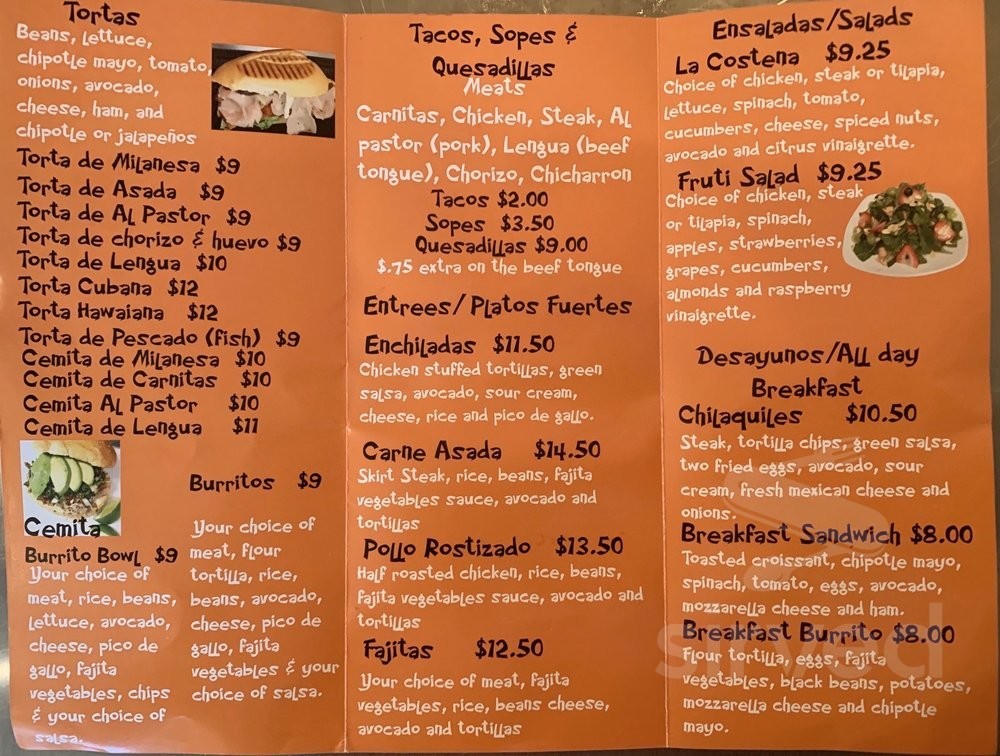 Tortas
Beans, Lettuce,
chipotle mayo, tomato,
onions, avocado,
cheese, ham, and
chipotle or jalapeños
Torta de Milanesa $9
Torta de Asada $9
Torta de Al Pastor $9
Torta de chorizo & huevo $9
Torta de Lengua $10
Torta Cubana $12
Torta Hawaiana $12
Torta de Pescado (fish) $9
Cemita de Milanesa $10
Cemita de Carnitas $10
Cemita Al Pastor $10
Cemita de Lengua $11
Cemita
Burrito Bowl $9
Your choice of
meat, rice, beans,
lettuce, avocado,
cheese, pico de
gallo, fajita
vegetables, chips
& your choice of
salsa.
Burritos $9
Your choice of
meat, flour
tortilla, rice,
beans, avocado,
cheese, pico de
gallo, fajita
vegetables & your
choice of salsa.
Tacos, Sopes &
Quesadillas
Meats
Carnitas, Chicken, Steak, Al
pastor (pork), Lengua (beef
tongue), Chorizo, Chicharron
Tacos $2.00
Sopes $3.50
Quesadillas $9.00
$.75 extra on the beef tongue
Entrees/Platos Fuertes
Enchiladas $11.50
Chicken stuffed tortillas, green
salsa, avocado, sour cream,
cheese, rice and pico de gallo.
Carne Asada $14.50
Skirt Steak, rice, beans, fajita
vegetables sauce, avocado and
tortillas
Pollo Rostizado $13.50
Half roasted chicken, rice, beans,
fajita vegetables sauce, avocado and
tortillas
Fajitas $12.50
Your choice of meat, fajita
vegetables, rice, beans cheese,
avocado and tortillas
Ensaladas/Salads
La Costena $9.25
Choice of chicken, steak or tilapia,
lettuce, spinach, tomato,
cucumbers, cheese, spiced nuts,
avocado and citrus vinaigrette.
Fruti Salad $9.25
Choice of chicken, steak
or tilapia, spinach,
apples, strawberries,
grapes, cucumbers,
almonds and raspberry
vinaigrette.
Desayunos/All day
Breakfast
Chilaquiles $10.50
Steak, tortilla chips, green salsa,
two fried eggs, avocado, sour
cream, fresh mexican cheese and
onions.
Breakfast Sandwich $8.00
Toasted croissant, chipotle mayo,
spinach, tomato, eggs, avocado,
mozzarella cheese and ham.
Breakfast Burrito $8.00
Flour tortilla, eggs, fajita
vegetables, black beans, potatoes,
mozzarella cheese and chipotle
mayo.
sirved